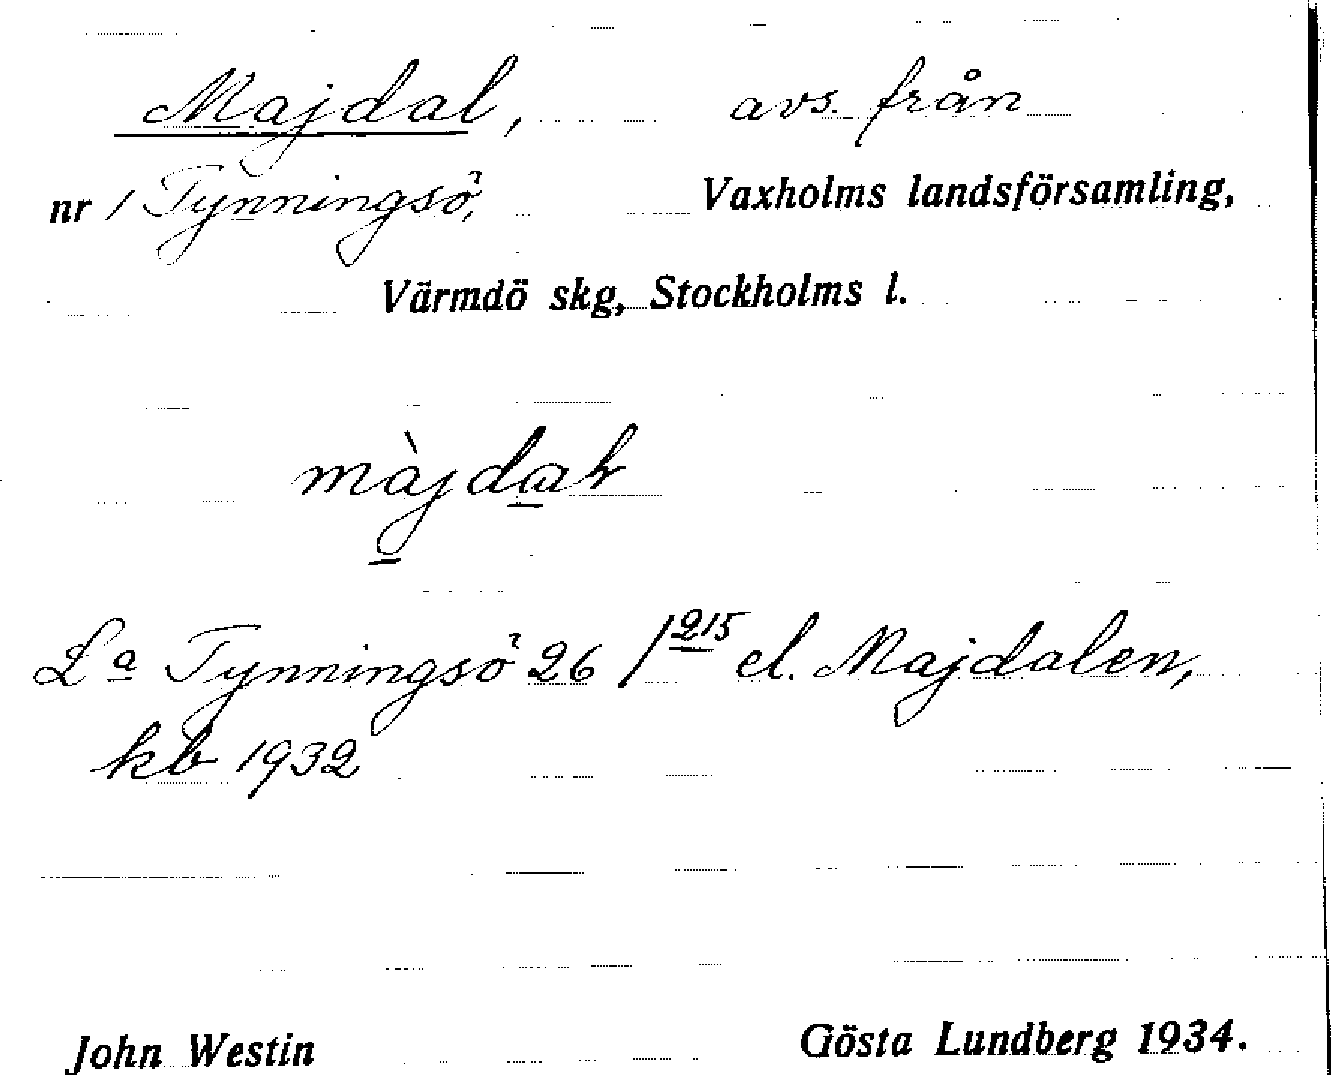 Majdal, avs. från
nr 1 Tynningsö, Vaxholms landsförsamling,
Värmdö skg, Stockholms l.
màjdaɫ
Lª Tynningsö 26/215 el. Majdalen,
kb 1932
John Westin Gösta Lundberg 1934.